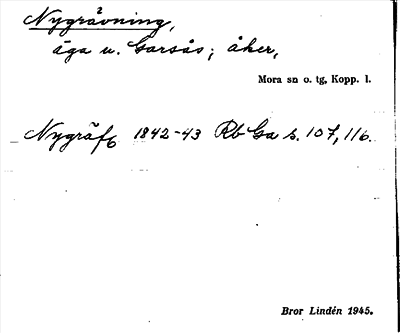 Nygrävning,
äga u. Garsås; åker,
Mora sn o. tg, Kopp. l.
Nygräf 1842-43 Rb Ga s. 107, 116.
Bror Lindén 1945.